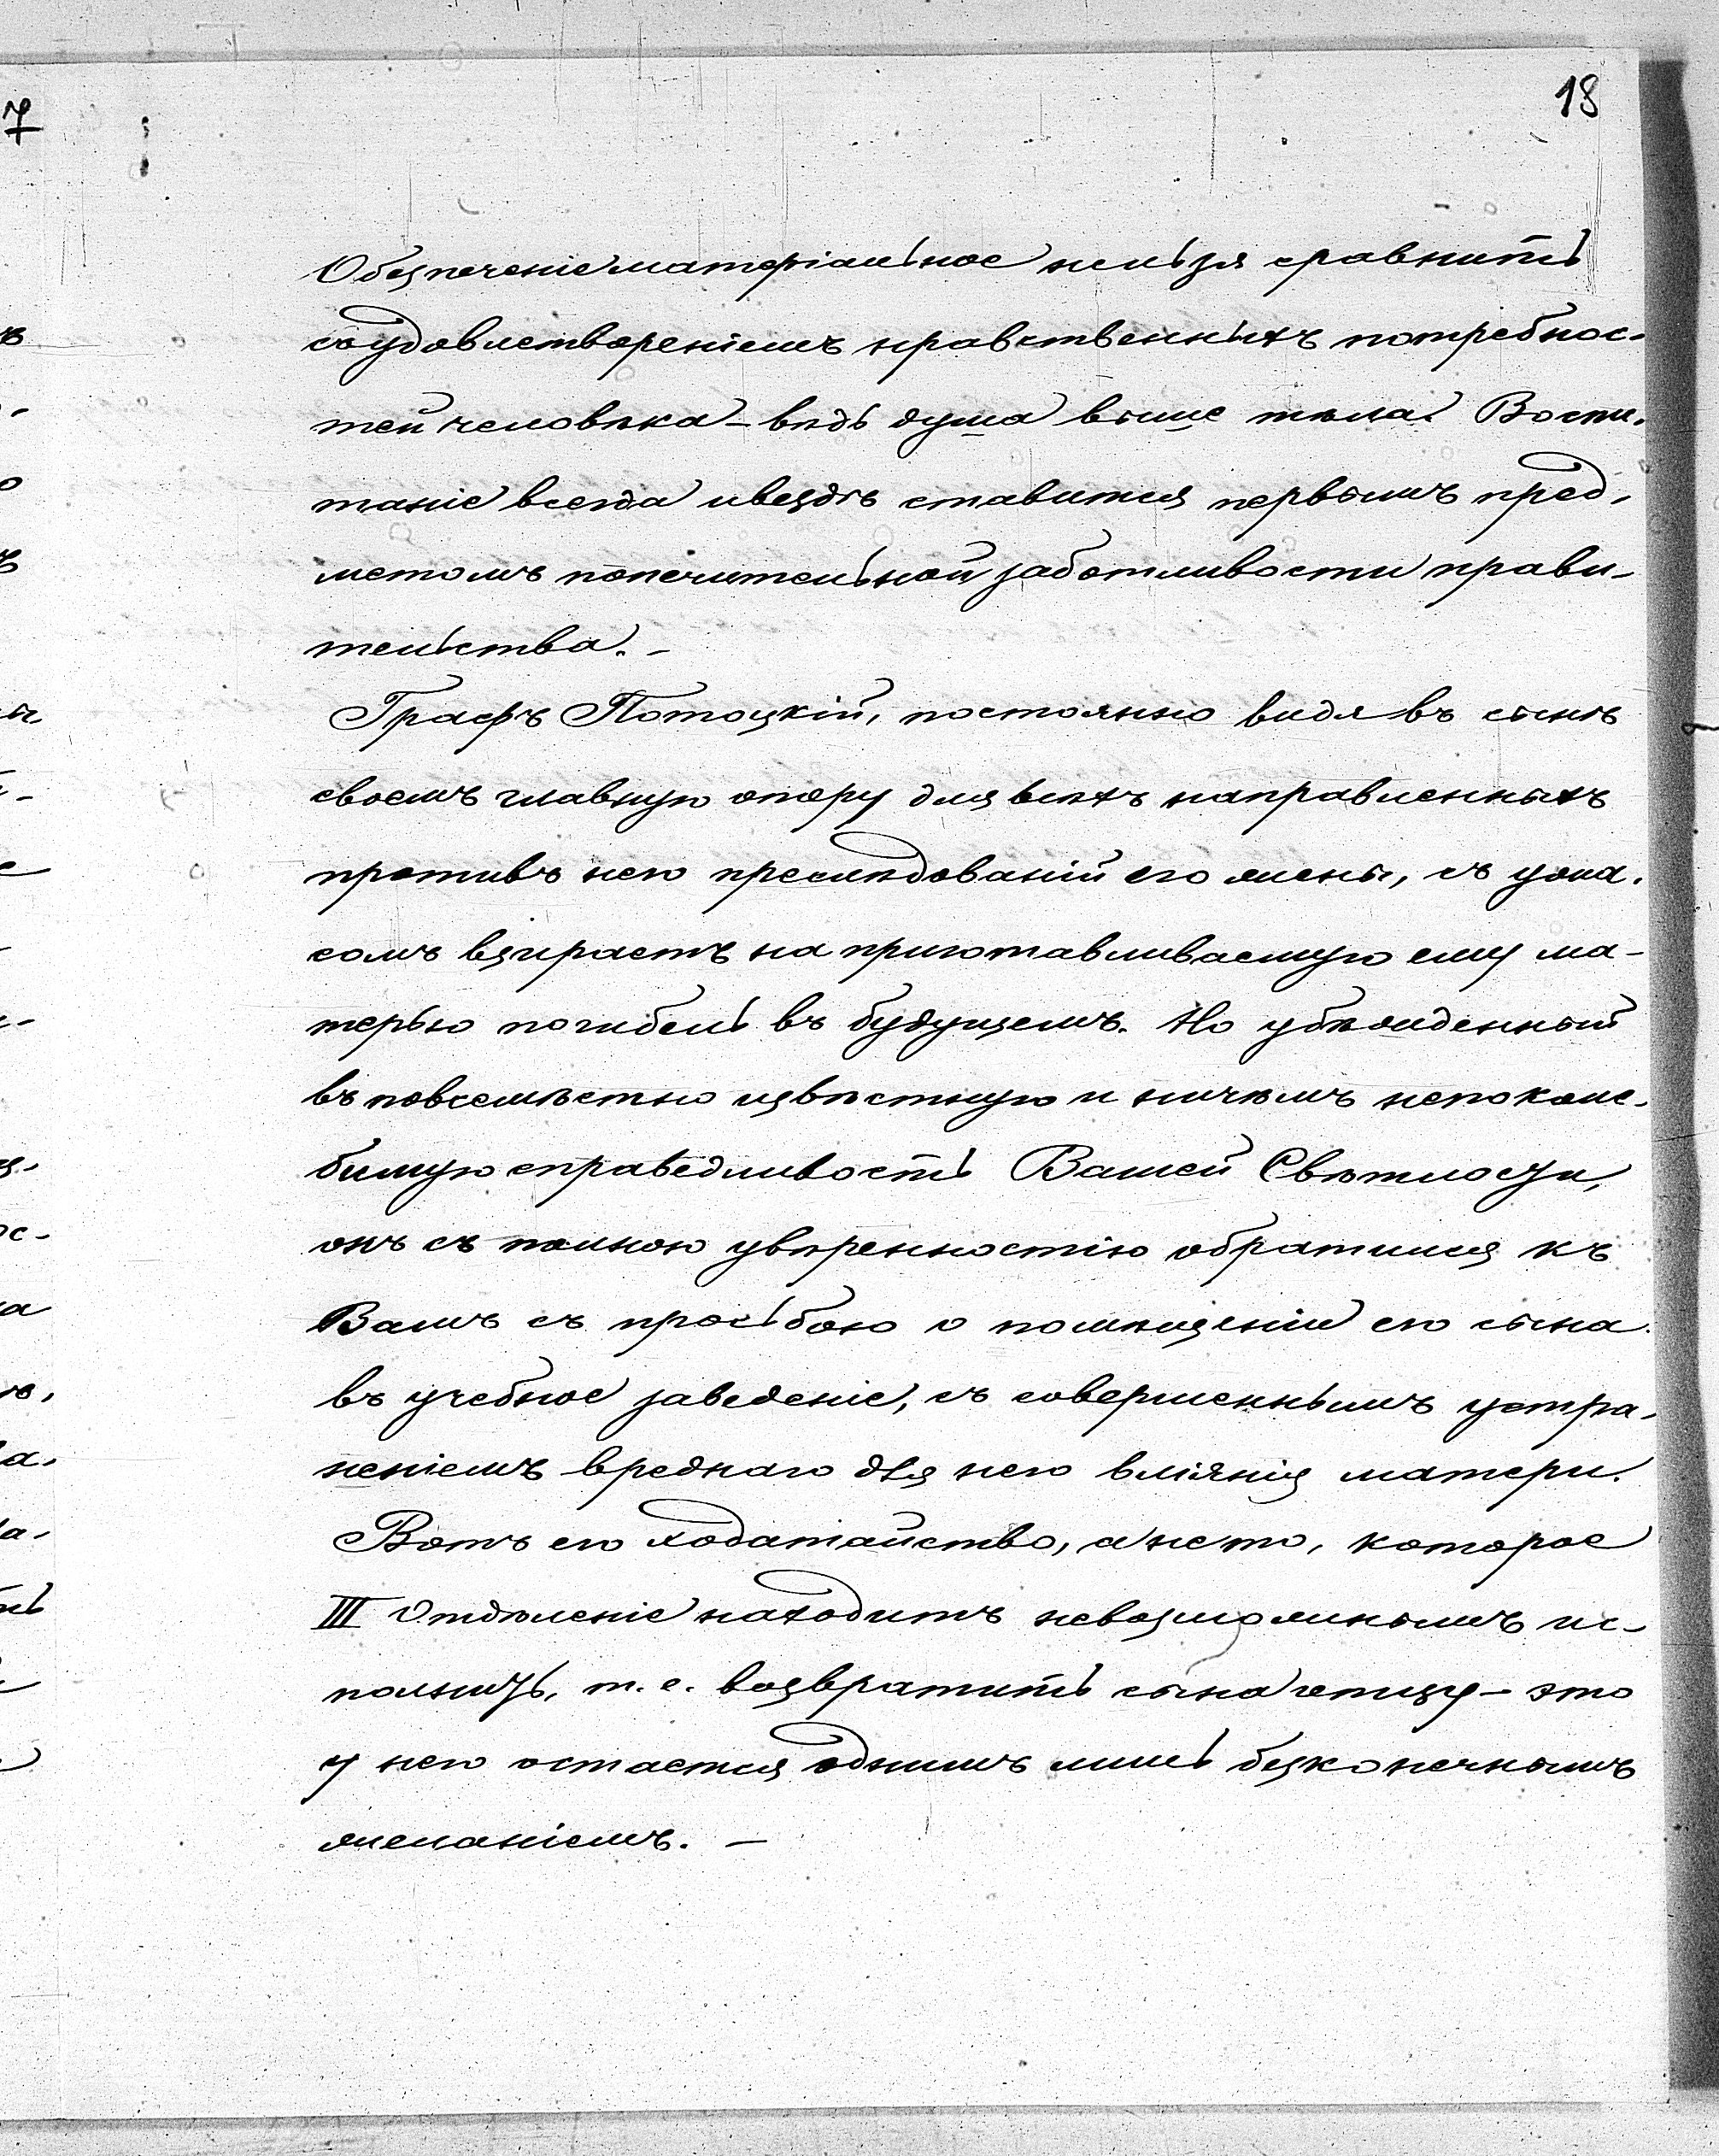 18
7
Обезпеченіе матеріальное нельзя сравнить
съ удовлетвореніемъ нравственныхъ потребнос-
тей человѣка – вѣдь душа выше тѣла. Воспи-
таніе всегда и вездѣ ставится первымъ пред-
метомъ попечительной заботливости прави-
тельства. –
Графъ Потоцкій, постоянно видя въ сынѣ
своемъ главную опору для всѣхъ направленныхъ
противъ него преслѣдованій его жены, съ ужа-
сомъ взираетъ на приготавливаемую ему ма-
терью погибель въ будущемъ. Но убѣжденный
въ повсемѣстно извѣстную и ничѣмъ непоколе-
бимую справедливость Вашей Свѣтлости,
онъ съ полною увѣренностію обратился къ
Вамъ съ просьбою о помѣщеніи его сына
въ учебное заведеніе, съ совершеннымъ устра-
неніемъ вреднаго для него вліянія матери.
Вотъ его ходатайство, а не то, которое
III Отдѣленіе находитъ невозможнымъ ис-
полнить, т. е. возвратить сына отцу – это
у него остается однимъ лишь безконечнымъ
желаніемъ. –